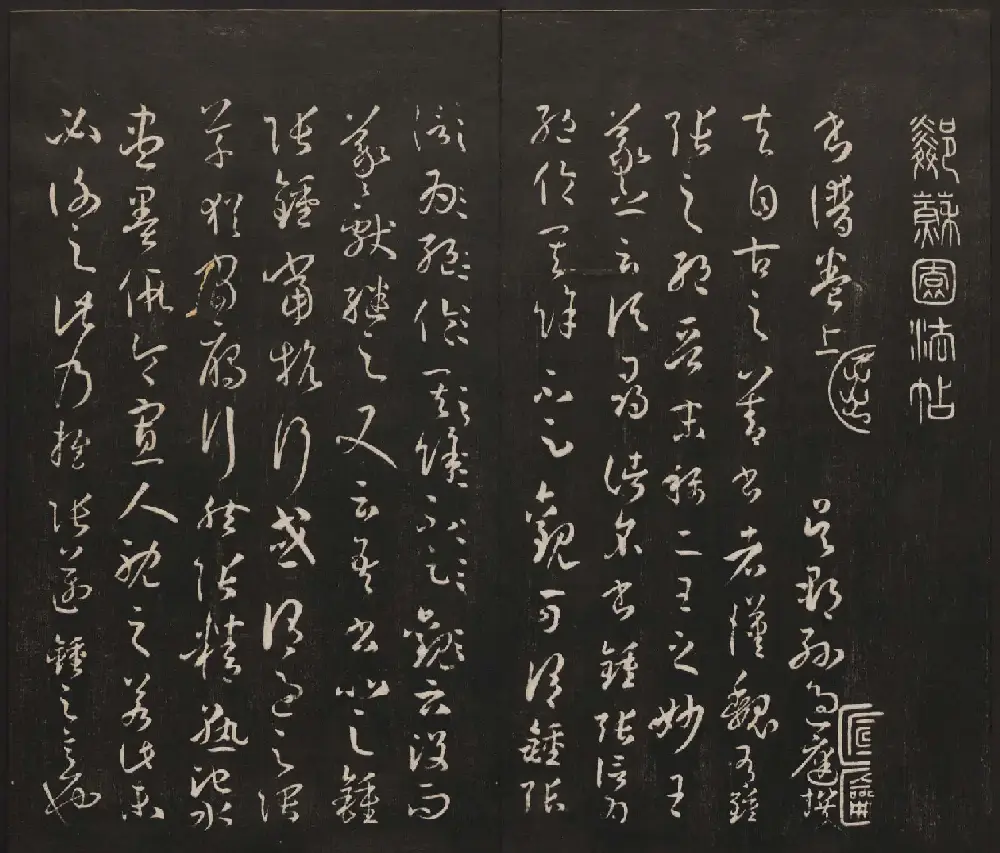 鄰蘇園法帖
書譜卷上 吳郡孫過庭撰
夫自古之善書者漢魏有鍾
張之絕晉末稱二王之妙王
羲之云頃尋諸名書鍾張信為
絕倫其餘不足觀可謂鍾張
信為絕倫其餘不足觀云沒而
羲獻繼之又云吾書比之鍾
張鍾當抗行或謂過之張
草猶當鴈行然張精熟池水
盡墨假令寡人耽之若此未
必謝之此乃推張邁鍾之意也